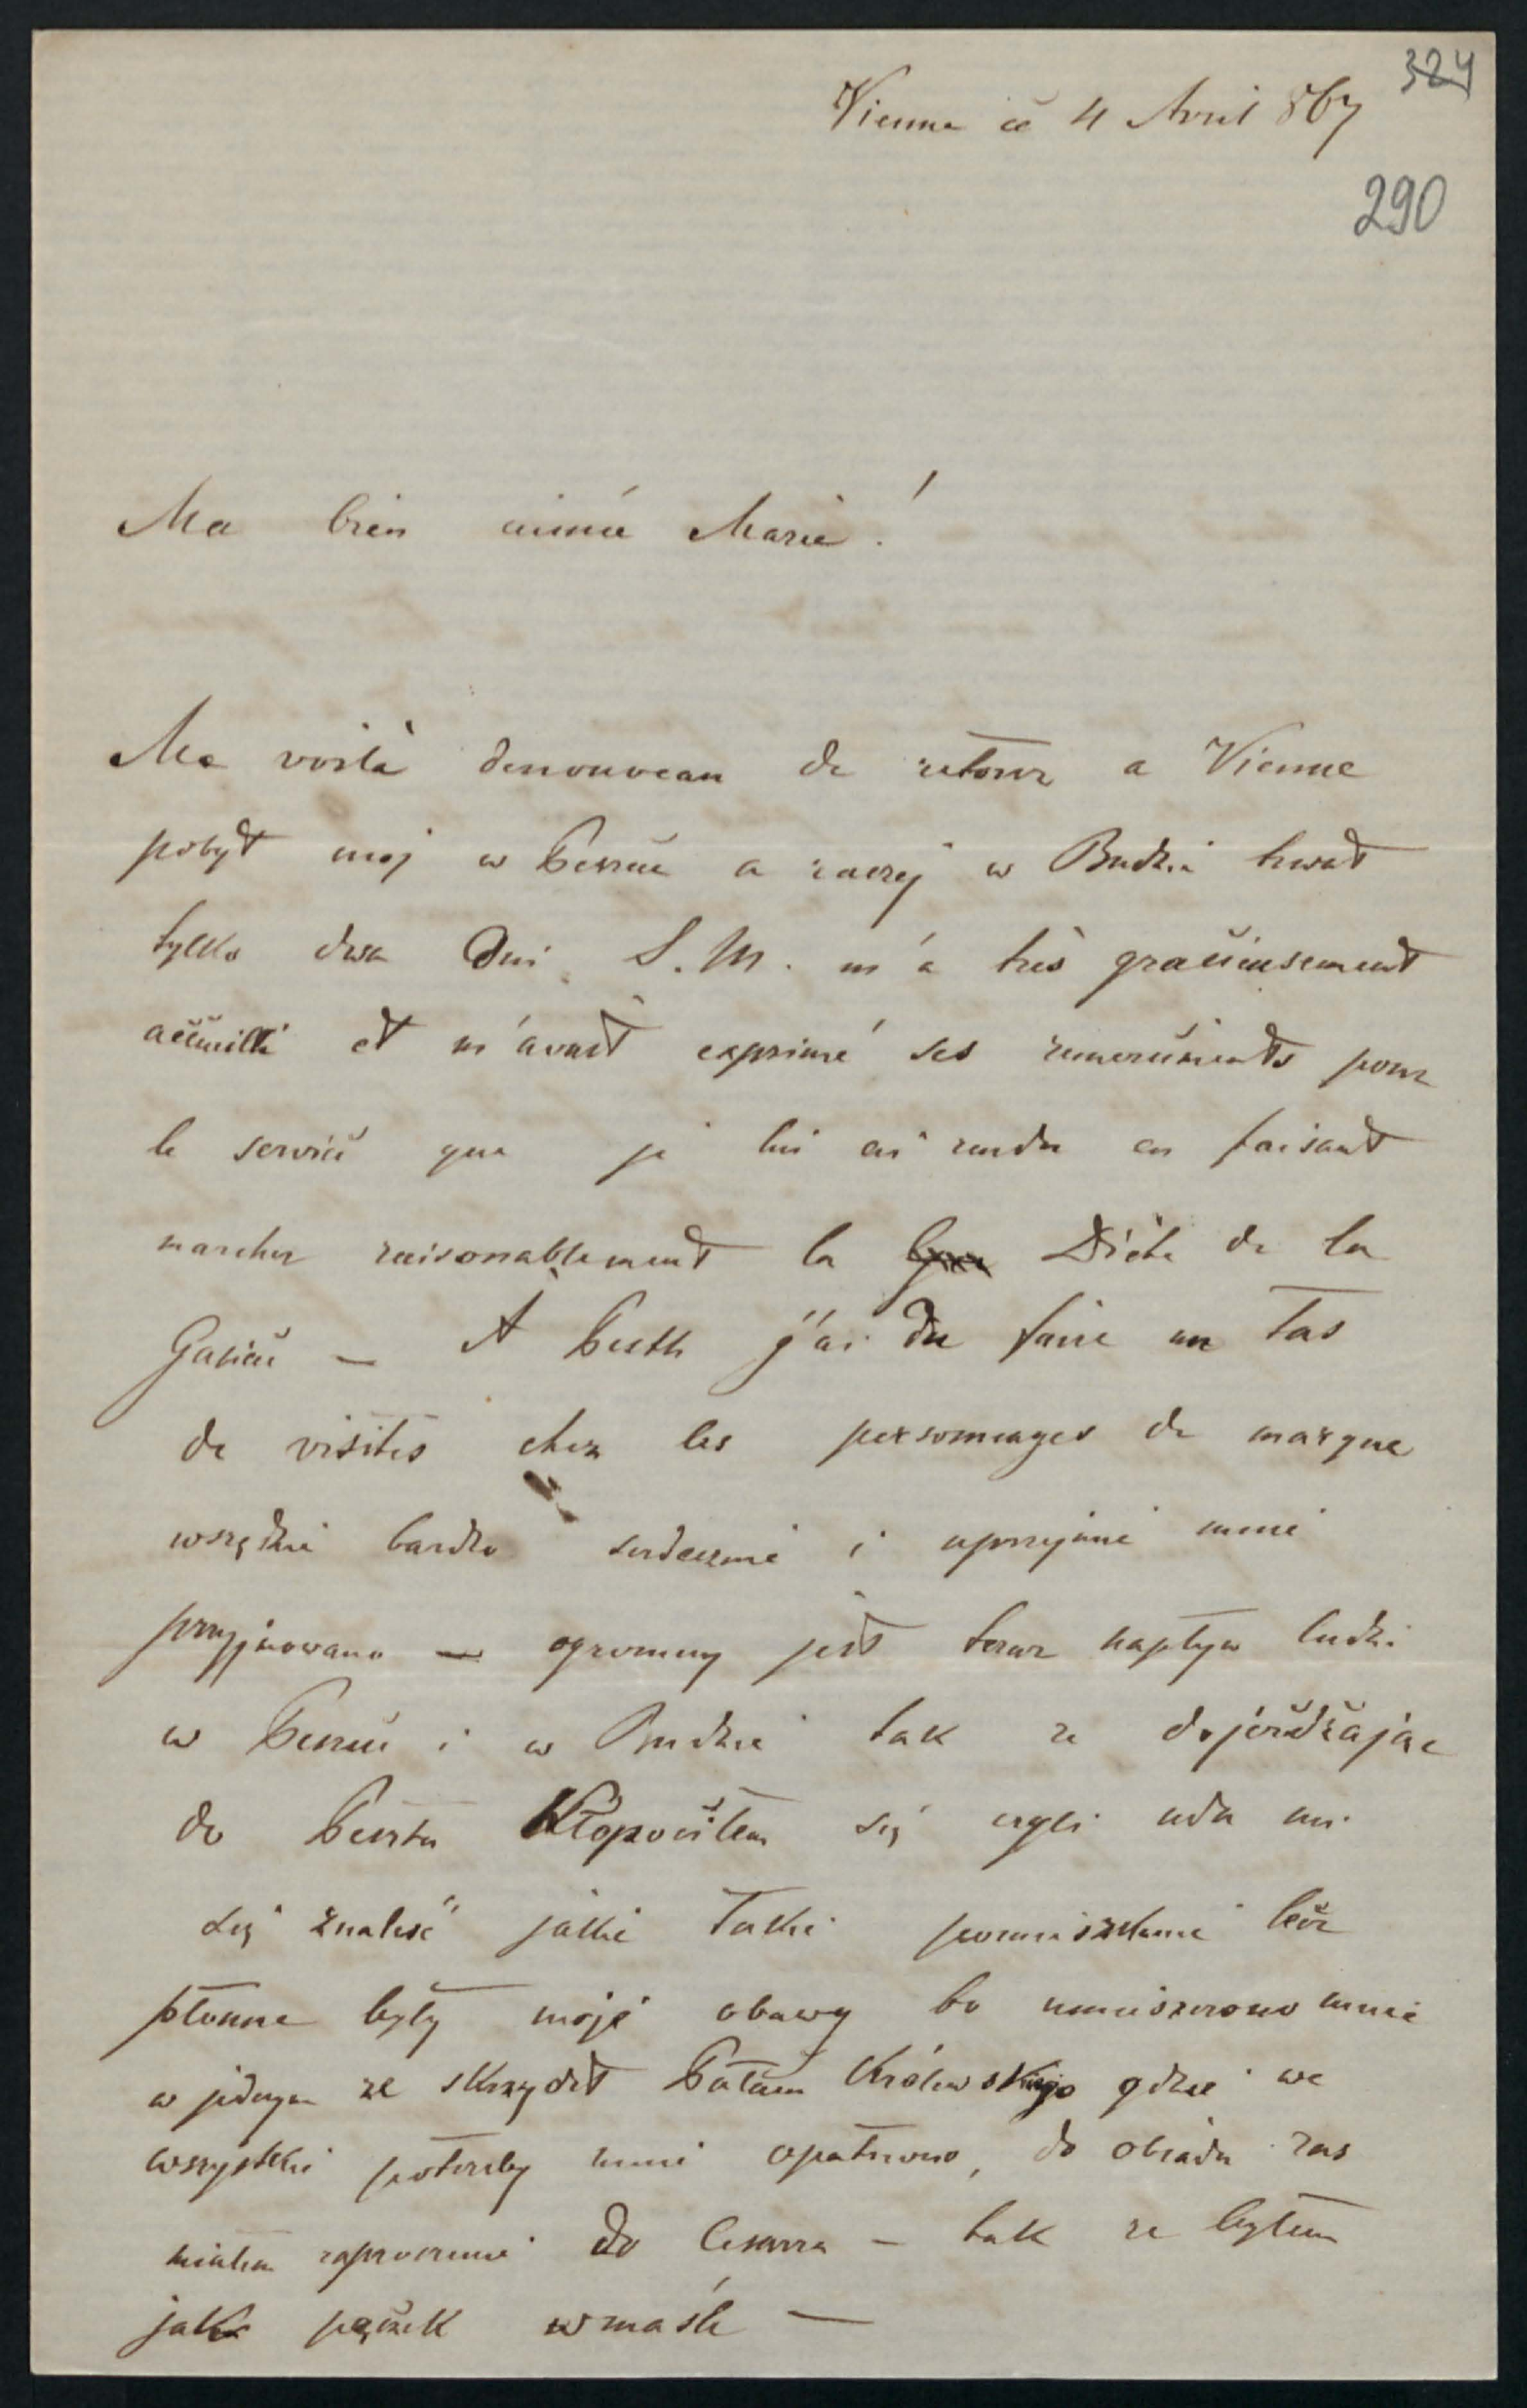 324
Vienne ce 4 Avril 867
290
Ma bien aimée Marie!
Me voilà denouveau de retour a Vienne
pobyt moj w Peszcie a raczej w Budzie trwał
tylko dwa Dni S. M. m'a très gracieusement
accueilli et m'avait exprimé ses remerciments pour
le service que je lui ai rendu en faisant
marcher raisonablement la Diète de la
Galicie — A Pesth j'ai du faire un tas
de visites chez les personnages de marque
wszędzie bardzo serdecznie i uprzejmie mnie
przyjmowano — ogromny jest teraz napływ ludzi
w Peszcie i w Budzie tak ze dojeżdżając
do Pesztu kłopociłem się czyli uda mi
się znaleść jakie takie pomieszkanie lecz
płonne były moje obawy bo umieszczono mnie
w jednym ze skrzydeł Pałacu Królewskiego gdzie we
wszystkie potrzeby mnie opatrzono, do obiadu zas
miałem zaproszenie do Cesarza — tak ze byłem
jak pączek w maśle —